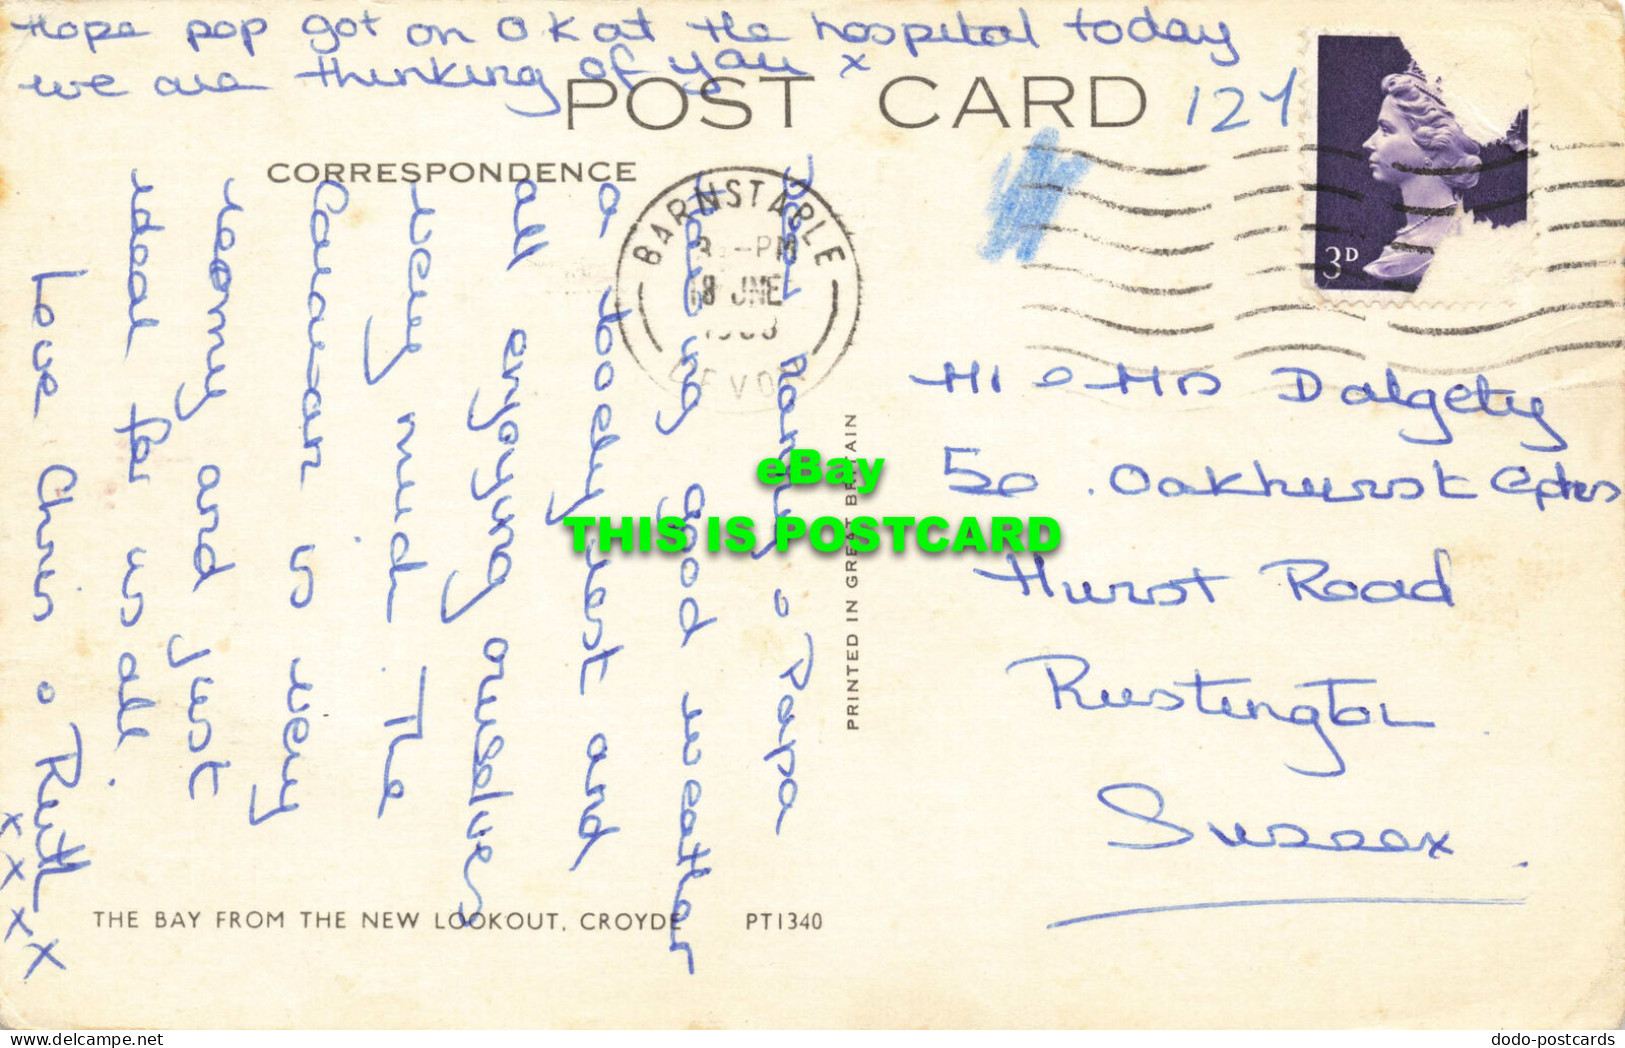 Hope pop got on OK at the hospital today
we are thinking of you x
POST CARD
127
CORRESPONDENCE
BARNSTAPLE
3 -PM
18 JNE
DEVON
3D
Dear Nanny & Papa
Having good weather
a lovely rest and
all enjoying ourselves
very much. The
Caravan is very
roomy and just
ideal for us all.
Love Chris & Ruth
x x x x
Mr & Mrs Dalgety
50. Oakhurst
Hurst Road
Rustington
Sussex.
PRINTED IN GREAT BRITAIN
THE BAY FROM THE NEW LOOKOUT, CROYDE PT1340
eBay
THIS IS POSTCARD
delcampe.net
dodo-postcards